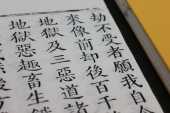 劫不受者願我自
來像前却後百千
地獄及三惡道諸
地獄惡趣畜生餓